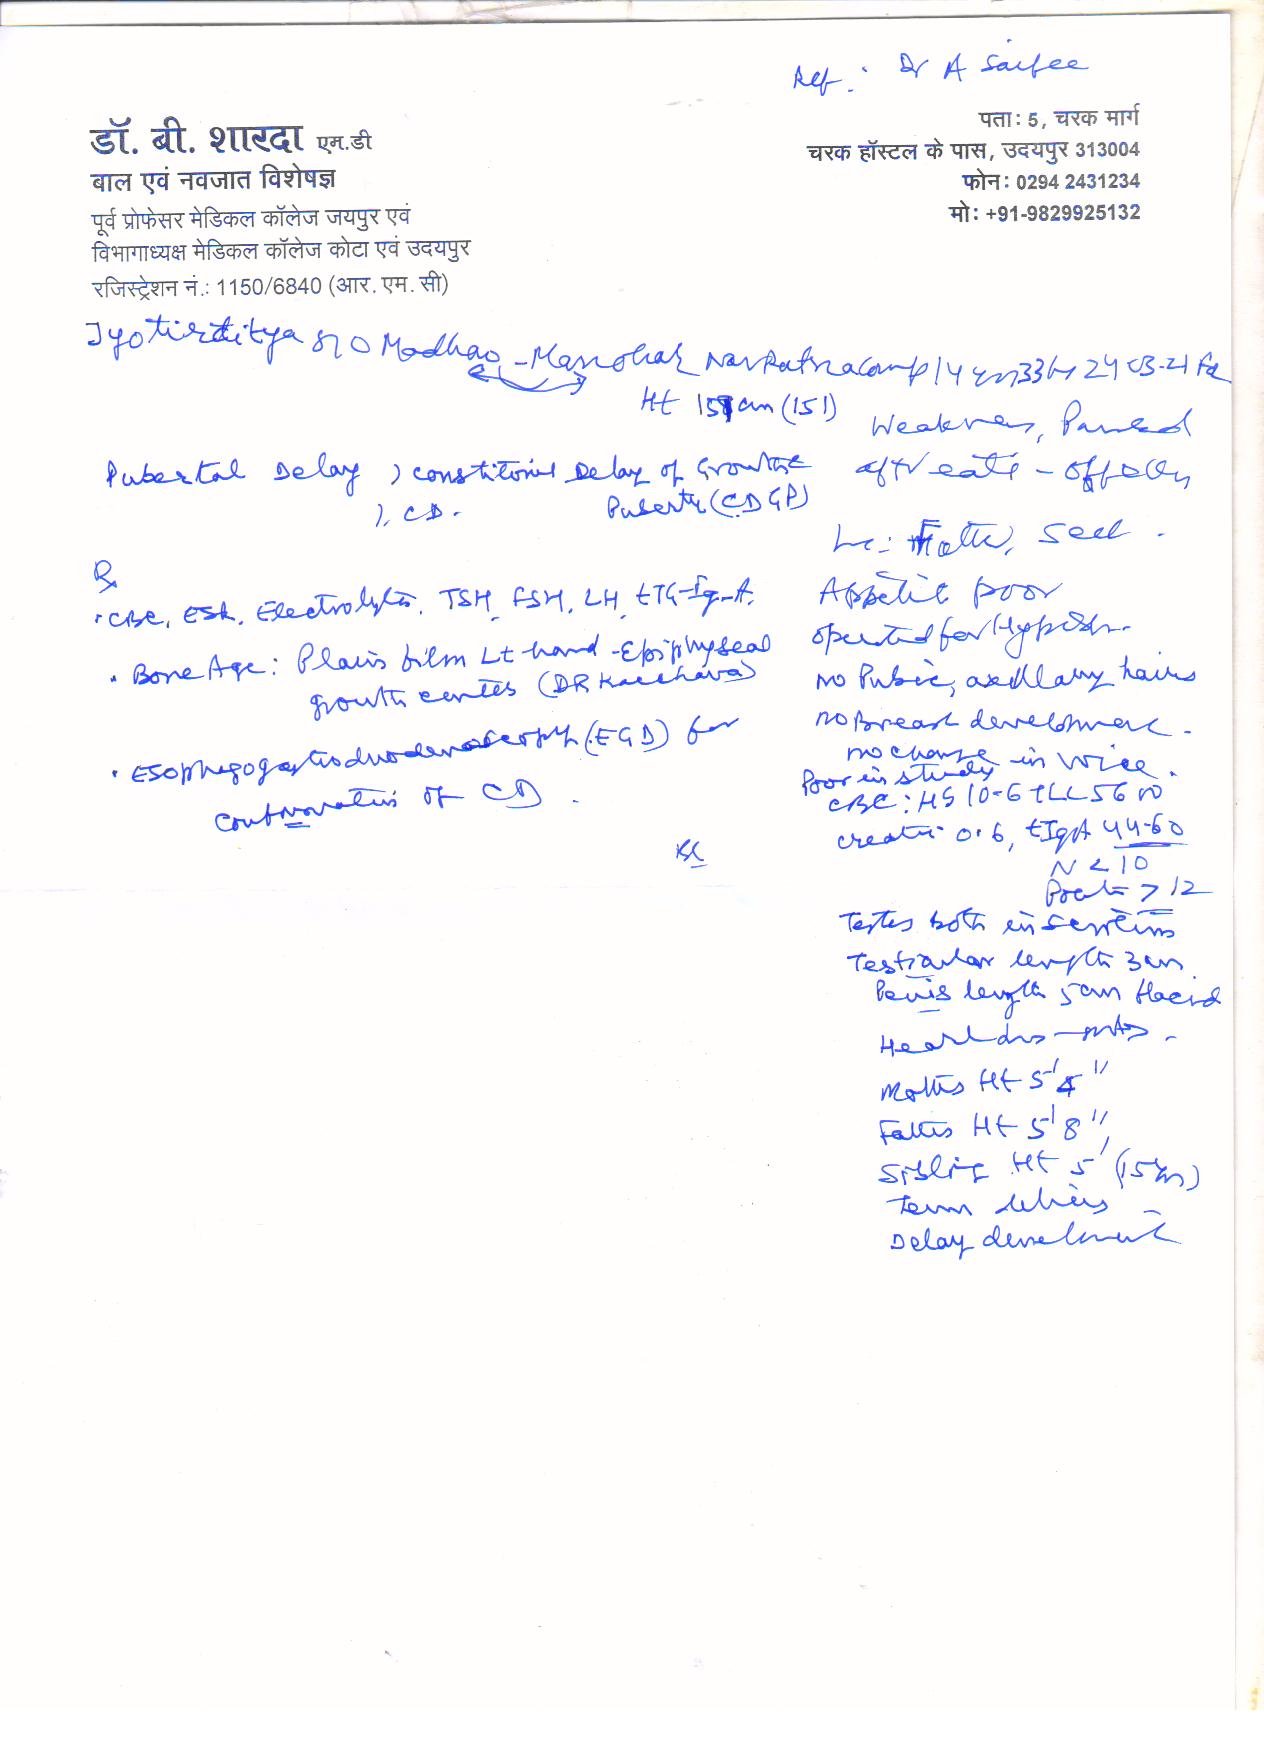 Ref: Dr A Saifee
डॉ. बी. शारदा एम.डी
बाल एवं नवजात विशेषज्ञ
पूर्व प्रोफेसर मेडिकल कॉलेज जयपुर एवं
विभागाध्यक्ष मेडिकल कॉलेज कोटा एवं उदयपुर
रजिस्ट्रेशन नं.: 1150/6840 (आर. एम. सी)
पता: 5, चरक मार्ग
चरक हॉस्टल के पास, उदयपुर 313004
फोन: 0294 2431234
मो: +91-9829925132
Jyotirditya S/O Madhao-Manohar Navratnacomp 14 33 24 03-21
Ht 151cm (151)
Pubertal Delay Delay of Growth
Puberty (CDGP)
CD.
℞
• CBC, ESR, Electrolytes, TSH, FSH, LH, tTG-Ig-A.
• Bone Age: Plain film Lt hand - Epiphyseal
growth centes (DR Kacchava)
• Esophegogastroduodenoscopy (EGD) for
of CD.
Weakness,
after eats -
Appetit poor
operated for
no Pubic, axillary hairs
no Breast development.
no change in voice.
Poor in study
CBC: HG 10-6 TLC 5600
creatin 0.6, tIgA 44-60
N < 10
> 12
Testes both in scrotum
Testicular length 3cm
Penis length 5cm flacid
Mothes Ht 5'4"
Fathes Ht 5'8"
Sibling Ht 5' (15yrs)
Term delivery
Delay development